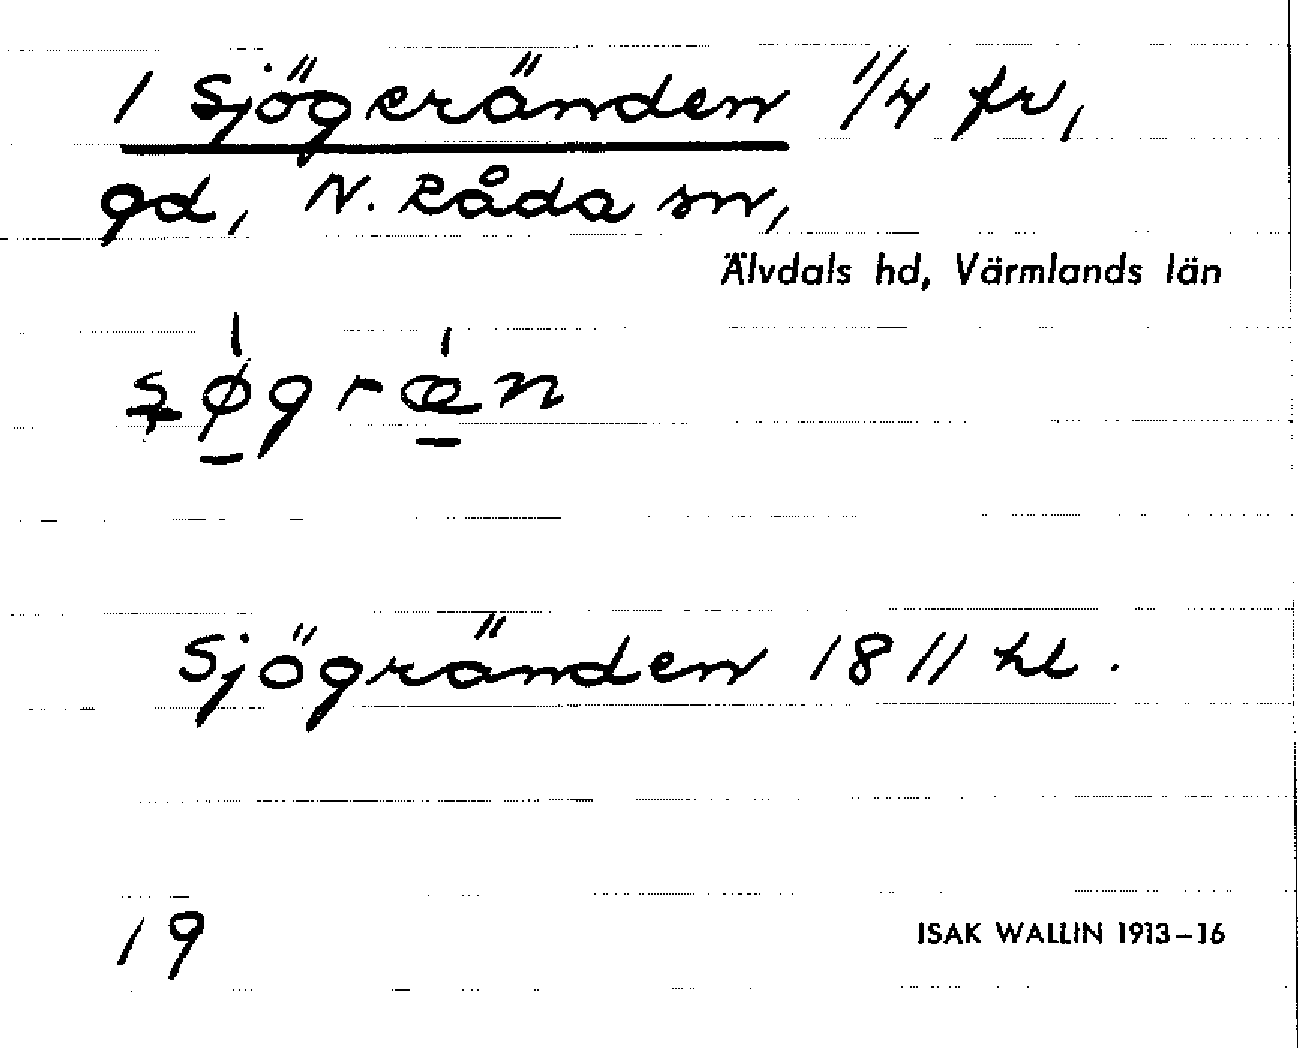 1 Sjögeränden 1/4 fr,
gd, N. Råda sn,
Älvdals hd, Värmlands län
søgræn
Sjögränden 1811 hl.
19
ISAK WALLIN 1913–16